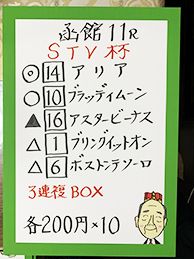 函館11R
STV杯
◎14アリア
○10ブラッディムーン
▲16アスタービーナス
△1ブリングイットオン
△6ボストンテソーロ
3連複BOX
各200円×10